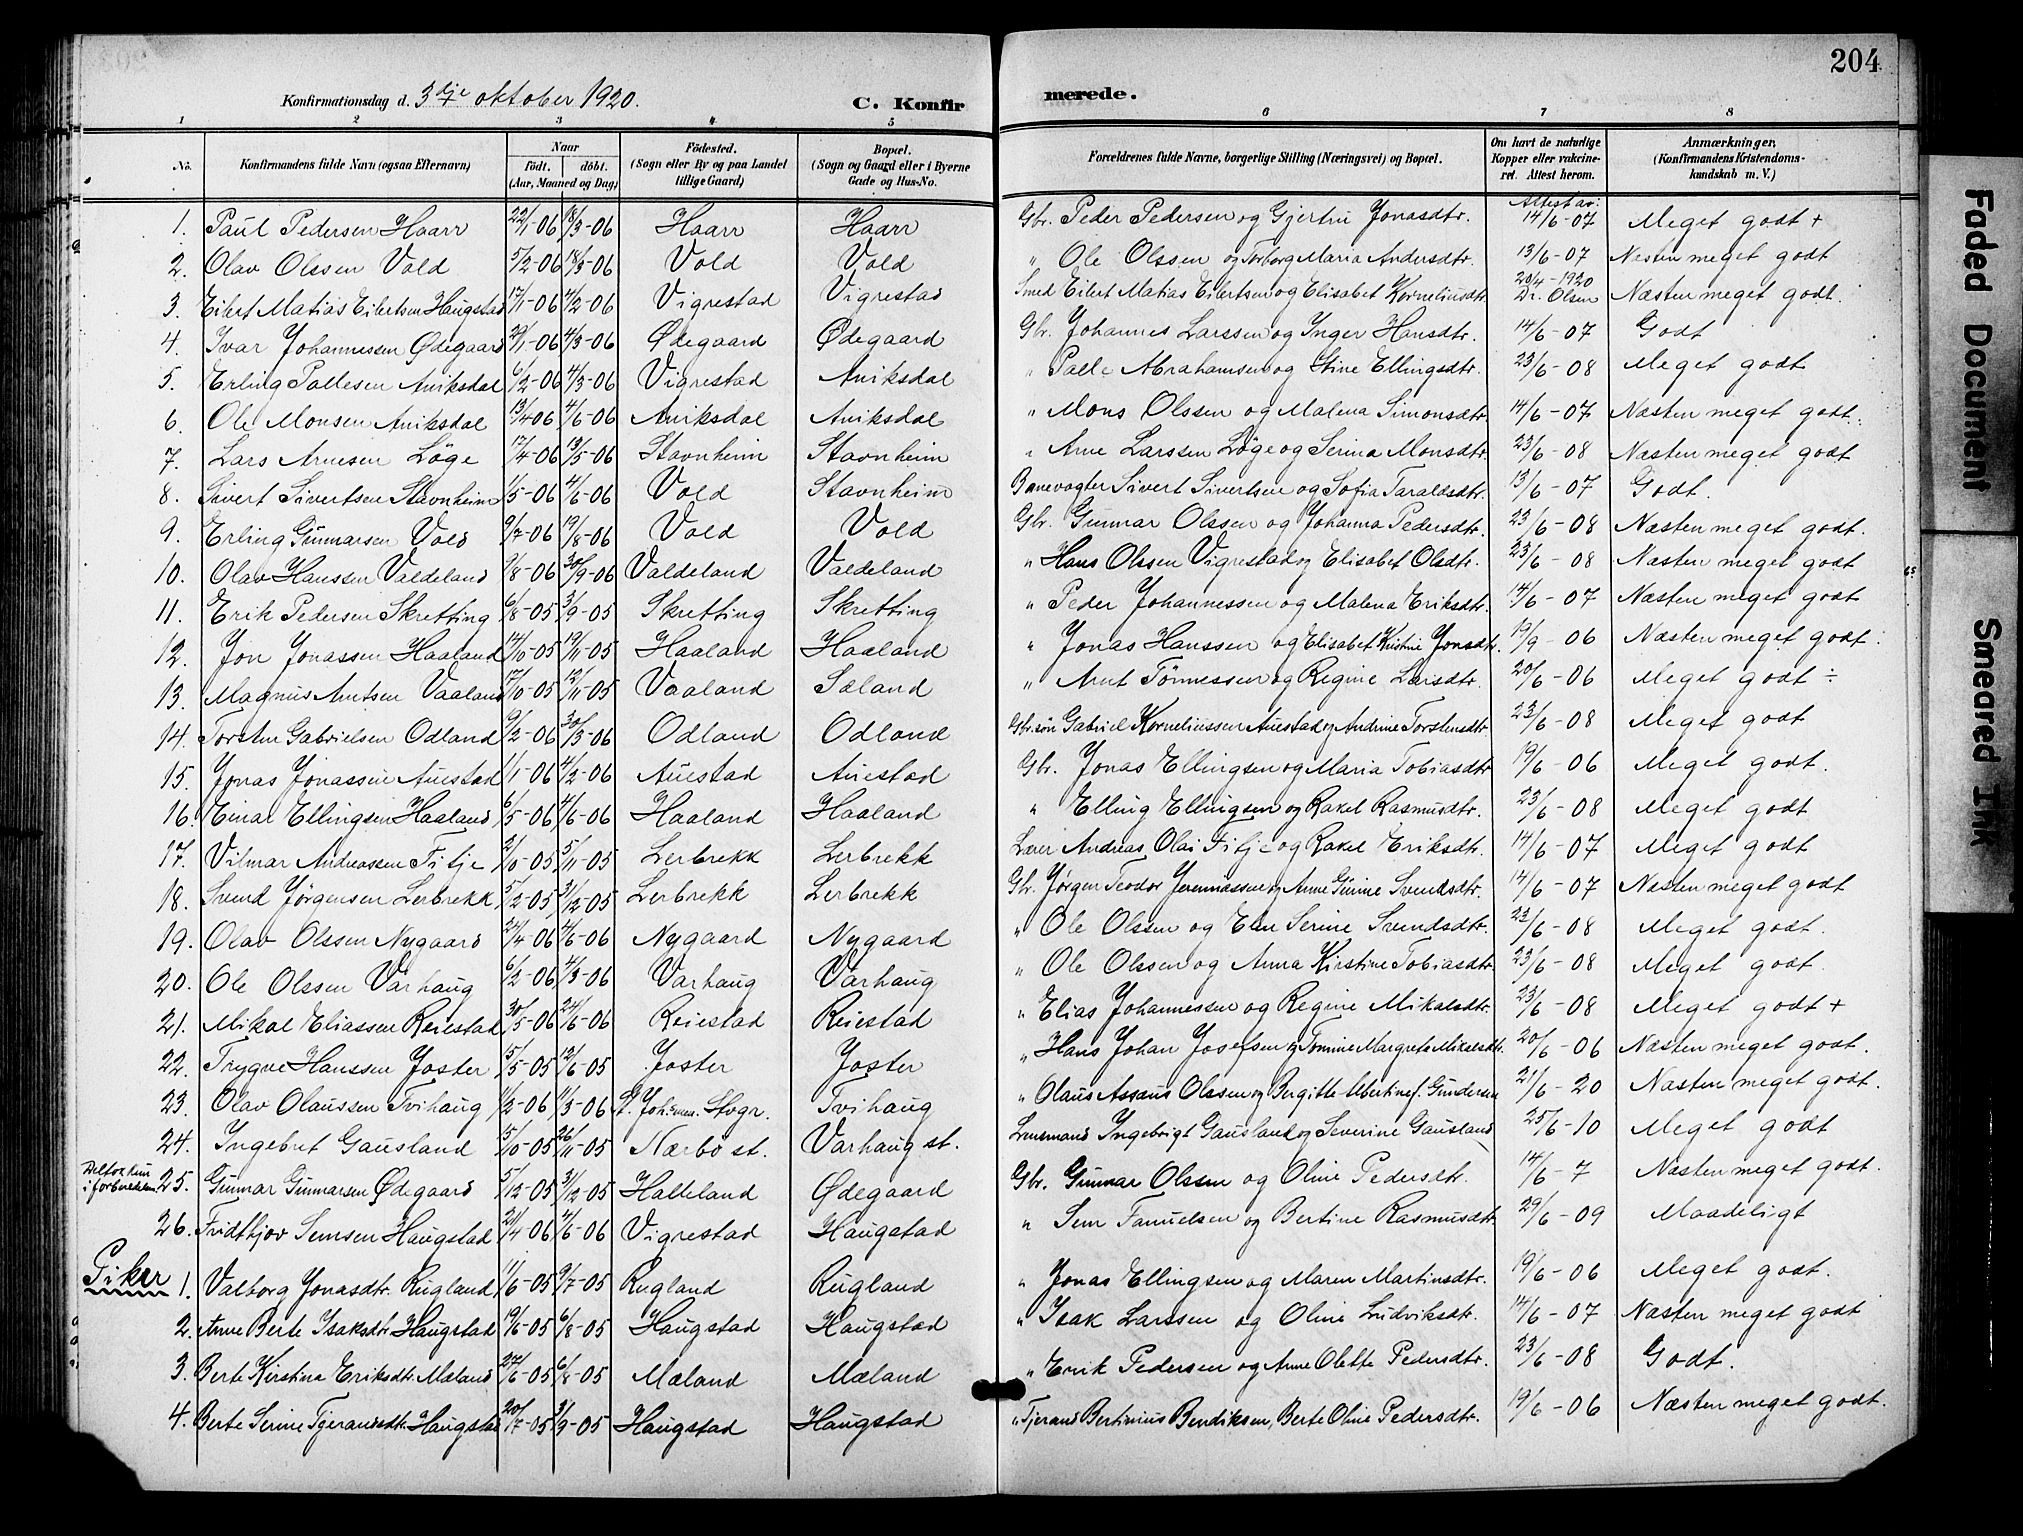 204
Konfirmationsdag d. 3dje oktober 1920. C. Konfirmerede.
1 2 3 4 5 6 7 8
No. Konfirmandens fulde Navn (ogsaa Efternavn) Naar født. døbt. (Aar, Maaned og Dag) Fødested. (Sogn eller By og paa Landet tillige Gaard) Bopæl. (Sogn og Gaard eller i Byerne Gade og Hus-No. Forældrenes fulde Navne, borgerlige Stilling (Næringsvei) og Bopæl. Om havt de naturlige Kopper eller vakcineret. Attest herom. Anmærkninger, (Konfirmandens Kristendomskundskab m. V.)
Attest av:
1. Paul Pedersen Haarr 22/1-06 18/3-06 Haarr Haarr Gbr. Peder Pedersen og Gjertru Jonasdtr. 14/6-07 Meget godt +
2. Olav Olssen Vold 5/2-06 18/3-06 Vold Vold " Ole Olssen og Torborg Maria Andersdtr. 13/6-07 Næsten meget godt
3. Eilert Matias Eilertsen Haugstad 17/1-06 4/2-06 Vigrestad Vigrestad Smed Eilert Matias Eilertsen og Elisabet Korneliusdtr. 20/4-1920 Dr. Olsen Næsten meget godt.
4. Ivar Johannessen Ødegaard 29/1-06 4/3-06 Ødegaard Ødegaard Gbr. Johannes Larssen og Inger Hansdtr. 14/6-07 Godt
5. Erling Pallesen Aniksdal 6/2-06 4/3-06 Vigrestad Aniksdal " Palle Abrahamsen og Stine Ellingsdtr. 23/6-08 Meget godt
6. Ole Monsen Aniksdal 13/4 06 4/6-06 Aniksdal Aniksdal " Mons Olssen og Malena Simonsdtr. 14/6-07 Næsten meget godt.
7. Lars Arnesen Løge 17/4-06 13/5-06 Stavnheim Stavnheim " Arne Larssen Løge og Serina Monsdtr. 23/6-08 Næsten meget godt
8. Sivert Sivertsen Stavnheim 1/5-06 4/6-06 Vold Stavnheim Banevogter Sivert Sivertsen og Sofia Taraldsdtr. 13/6-07 Godt.
9. Erling Gunnarsen Vold 9/7-06 19/8-06 Vold Vold Gbr. Gunnar Olssen og Johanna Pedersdtr. 23/6-08 Næsten meget godt.
10. Olav Hanssen Valdeland 9/8-06 30/9-06 Valdeland Valdeland " Hans Olssen Vigrestad og Elisabet Olsdtr. 23/6-08 Næsten meget godt
11. Erik Pedersen Skretting 6/8-05 3/9-05 Skretting Skretting " Peder Johannessen og Malena Eriksdtr. 14/6-07 Næsten meget godt
12. Jon Jonassen Haaland 14/10-05 19/11-05 Haaland Haaland " Jonas Hanssen og Elisabet Kistine Jonsdtr. 19/9-06 Næsten meget godt
13. Magnus Arntsen Vaaland 17/10-05 12/11-05 Vaaland Sæland " Arnt Tønnessen og Regine Larsdtr. 20/6-06 Meget godt ÷
14. Torsten Gabrielsen Odland 9/2-06 30/3-06 Odland Odland Gbr.søn Gabriel Korneliussen Auestad og Andrine Torstensdtr. 23/6-08 Meget godt
15. Jonas Jonassen Auestad 1/1-06 4/2-06 Auestad Auestad Gbr. Jonas Ellingsen og Maria Tobiasdtr. 19/6-06 Meget godt.
16. Einar Ellingsen Haaland 6/5-06 4/6-06 Haaland Haaland " Elling Ellingsen og Rakel Rasmusdtr. 23/6-08 Meget godt
17. Vilmar Andreassen Fitje 2/10-05 5/11-05 Lerbrekk Lerbrekk Lærer Andreas Olai Fitje og Rakel Eriksdtr. 14/6-07 Meget godt
18. Svend Jørgensen Lerbrekk 5/12-05 31/12-05 Lerbrekk Lerbrekk Gbr. Jørgen Teodor Jeremiassen og Anne Gurine Svendsdtr. 14/6-07 Næsten meget godt
19. Olav Olssen Nygaard 24/4-06 4/6-06 Nygaard Nygaard " Ole Olssen og Elen Serine Svendsdtr. 23/6-08 Meget godt.
20. Ole Olssen Varhaug 6/2-06 4/3-06 Varhaug Varhaug " Ole Olssen og Anna Kirstine Tobiasdtr. 23/6-08 Meget godt.
21. Mikal Eliassen Reiestad 30/5-06 24/6-06 Reiestad Reiestad " Elias Johannessen og Regine Mikalsdtr. 23/6-08 Meget godt +
22. Trygve Hanssen Joster 15/5-05 12/6-05 Joster Joster " Hans Johan Josefsen og Tomine Margrete Mikalsdtr. 20/6-06 Næsten meget godt.
23. Olav Olaussen Tvihaug 11/2-06 11/3-06 St. Johannes Stvgr. Tvihaug " Olaus Assæus Olssen og Bergitte Albertine f. Gundersen 21/6-20 Næsten meget godt.
24. Ingebret Gausland 15/10-05 26/11-05 Nærbø st. Varhaug st. Lensmand Ingebrigt Gausland og Severine Gausland 25/6-10 Meget godt
Deltok kun i forberedelsen 25. Gunnar Gunnarsen Ødegaard 5/12-05 31/12-05 Halleland Ødegaard Gbr. Gunnar Olssen og Oline Pedersdtr. 14/6-7 Næsten meget godt.
26. Fridthjov Semsen Haugstad 21/4-06 4/6-06 Vigrestad Haugstad " Sem Famuelsen og Bertine Rasmusdtr. 29/6-09 Maadeligt
Piker
1. Valborg Jonasdtr. Rugland 11/6-05 9/7-05 Rugland Rugland " Jonas Ellingsen og Maren Martinsdtr. 19/6-06 Meget godt.
2. Anne Berte Isaksdtr. Haugstad 19/6-05 6/8-05 Haugstad Haugstad " Isak Larssen og Oline Ludviksdtr. 14/6-07 Næsten meget godt
3. Berte Kirstina Eriksdtr. Mæland 27/6-05 6/8-05 Mæland Mæland " Erik Pedersen og Anne Olette Pedersdtr. 23/6-08 Godt.
4. Berte Serine Tjerandsdtr. Haugstad 20/7-05 3/9-05 Haugstad Haugstad " Tjerand Bertinius Bendiksen, Berte Oline Pedersdtr. 19/6-06 Næsten meget godt.
Faded Document
Smeared Ink